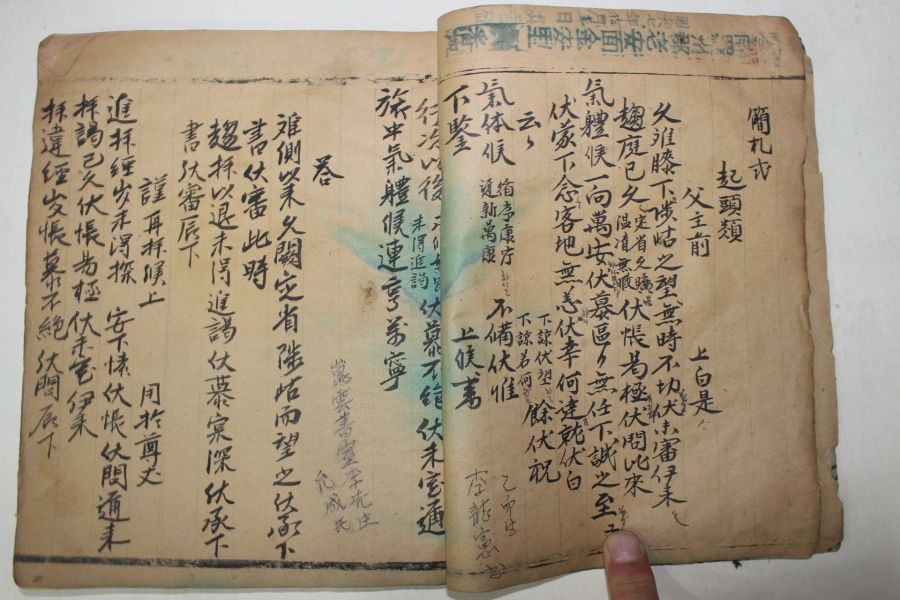 簡札式
起頭類
父主前
上白是
久離膝下陟岵之望無時不切伏未審伊來
趨庭已久 定省久曠 溫凊無暇 伏悵曷極伏問比來
氣體候一向萬安伏慕區々無任下誠之至 子
伏蒙下念客地無恙伏幸何達就伏白
云々 下諒伏望 下諒若何 餘伏祝
氣体候 循序康序 邇新萬康 不備伏惟
下鑒 上候書
乙卯生
李龍憲
行次以後 未得進謁 伏慕不絶伏未審邇
旅中氣體候連亨萬寧
答
崑雲書室李先生
離側以來久闕定省陟岵而望之伏承下
書伏審此時
趨拜以退未得進謁伏慕冞深伏承下
書伏審辰下
謹再拜候上 用於尊丈
進拜經歲未得探 安下懷伏悵伏問邇來
拜謁已久伏悵曷極伏未審伊來
拜違經歲悵慕不絶伏問辰下